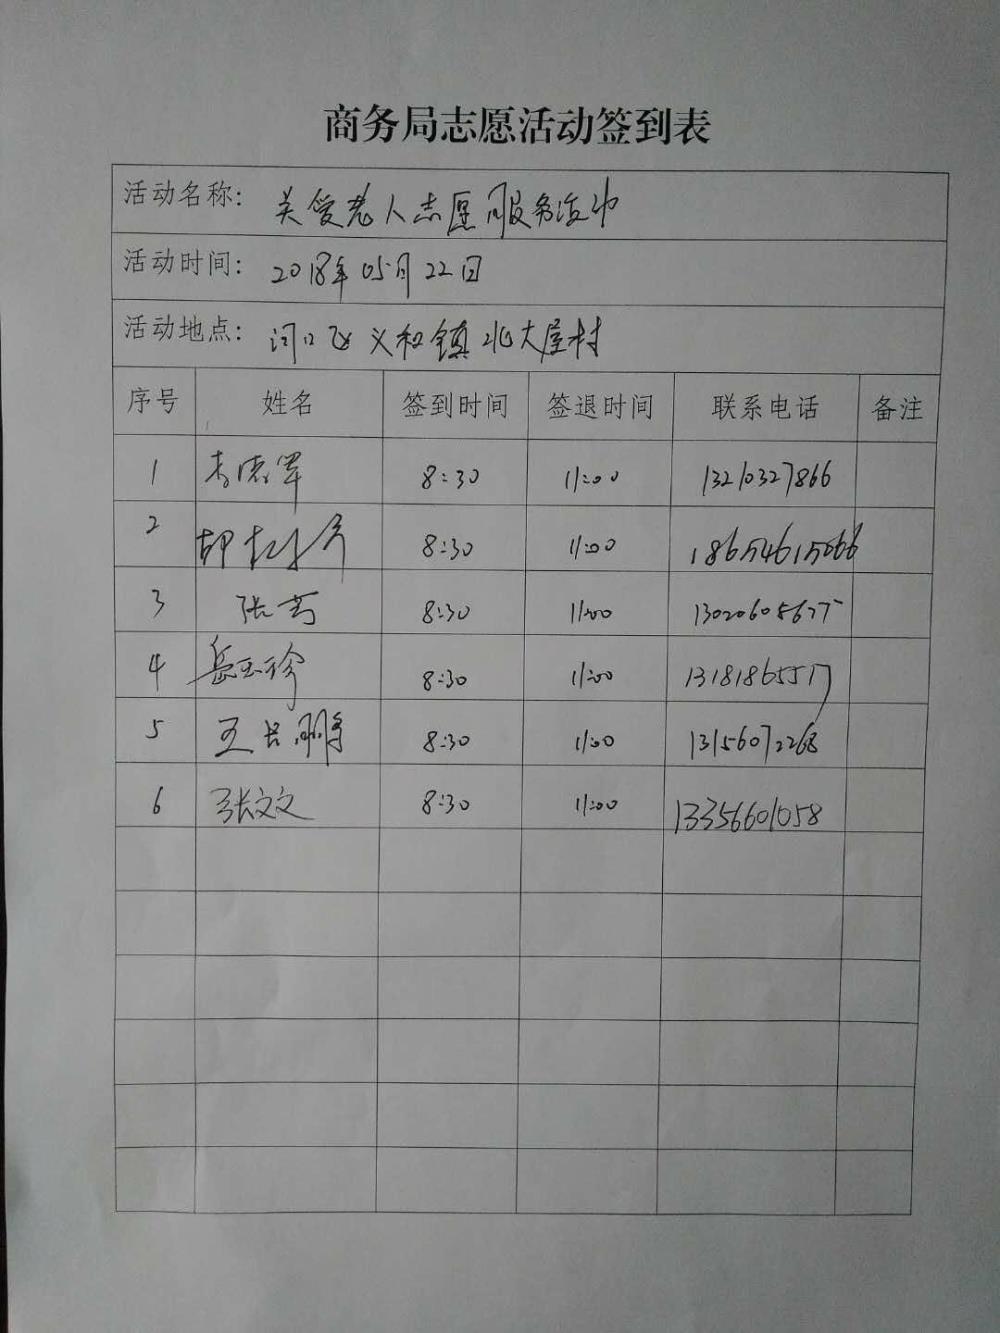 商务局志愿活动签到表
活动名称: 关爱老人志愿服务活动
活动时间: 2018年05月22日
活动地点: 河口区义和镇北大屋村
序号 姓名 签到时间 签退时间 联系电话 备注
1 8:30 11:00 13210327866
2 8:30 11:00
3 张芳 8:30 11:00 13020605677
4 岳玉珍 8:30 11:00 13181865517
5 王长鹏 8:30 11:00 13156072268
6 张文文 8:30 11:00 13356601058